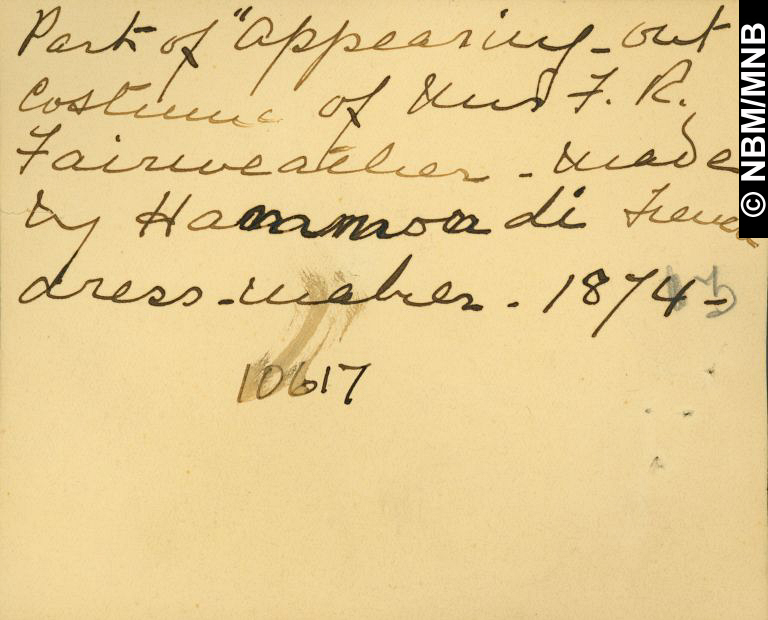 Part of "appearing-out
costume of Mrs F. R.
Fairweather - made
by Hammond di French
dress-maker. - 1874 -
10617
© NBM/MNB